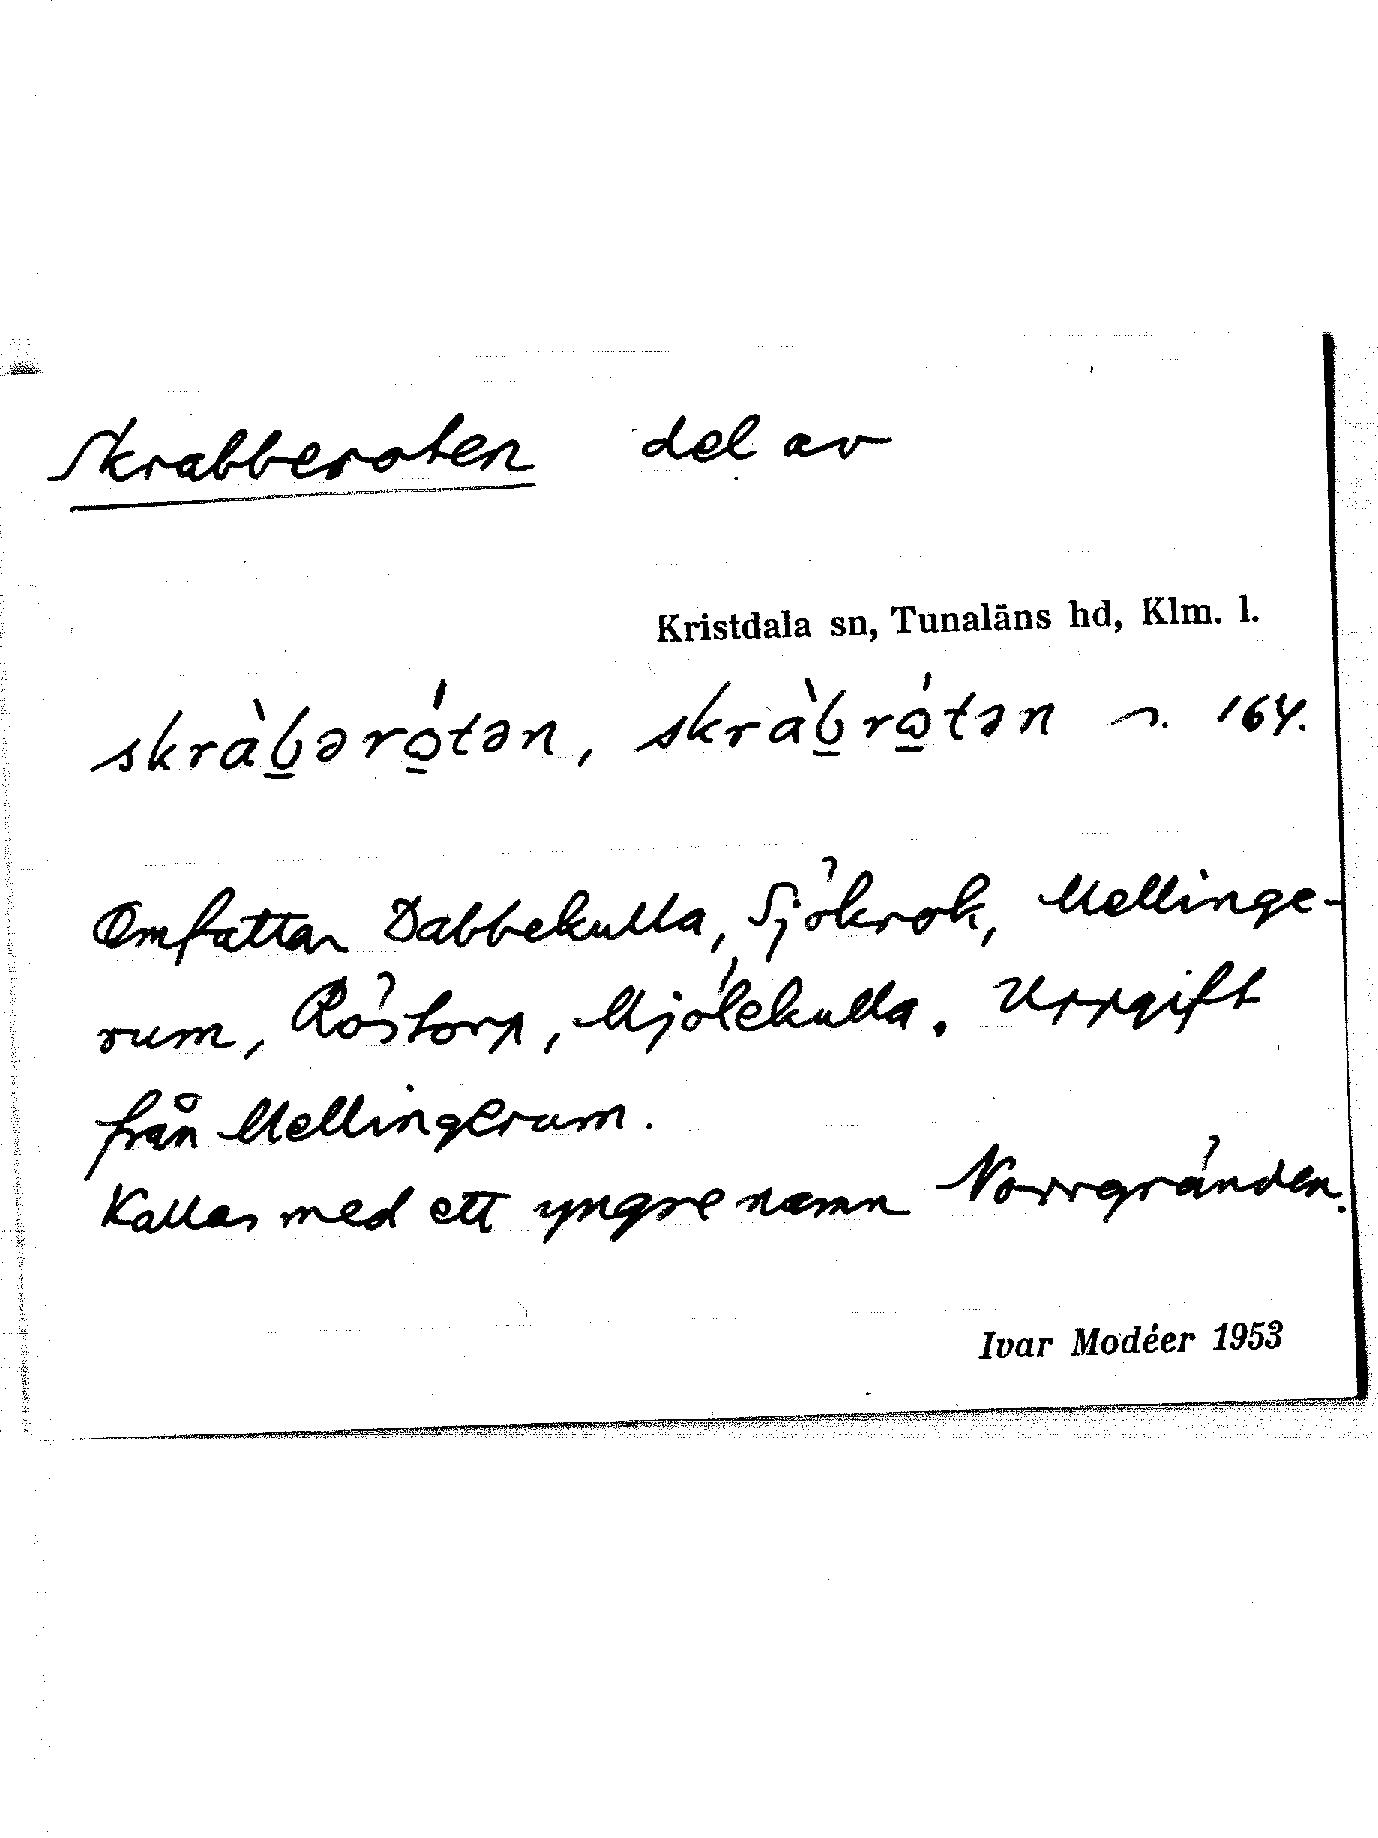 Skrabberoten del av
Kristdala sn, Tunaläns hd, Klm. l.
skràb̲əró̲tən, skràb̲ró̲tən s. 164.
Omfattar Dabbekulla, Sjökrok, Mellinge-
rum, Röstorp, Mjölekulla. Uppgift
från Mellingerum.
Kallas med ett yngre namn Norrgränden.
Ivar Modéer 1953